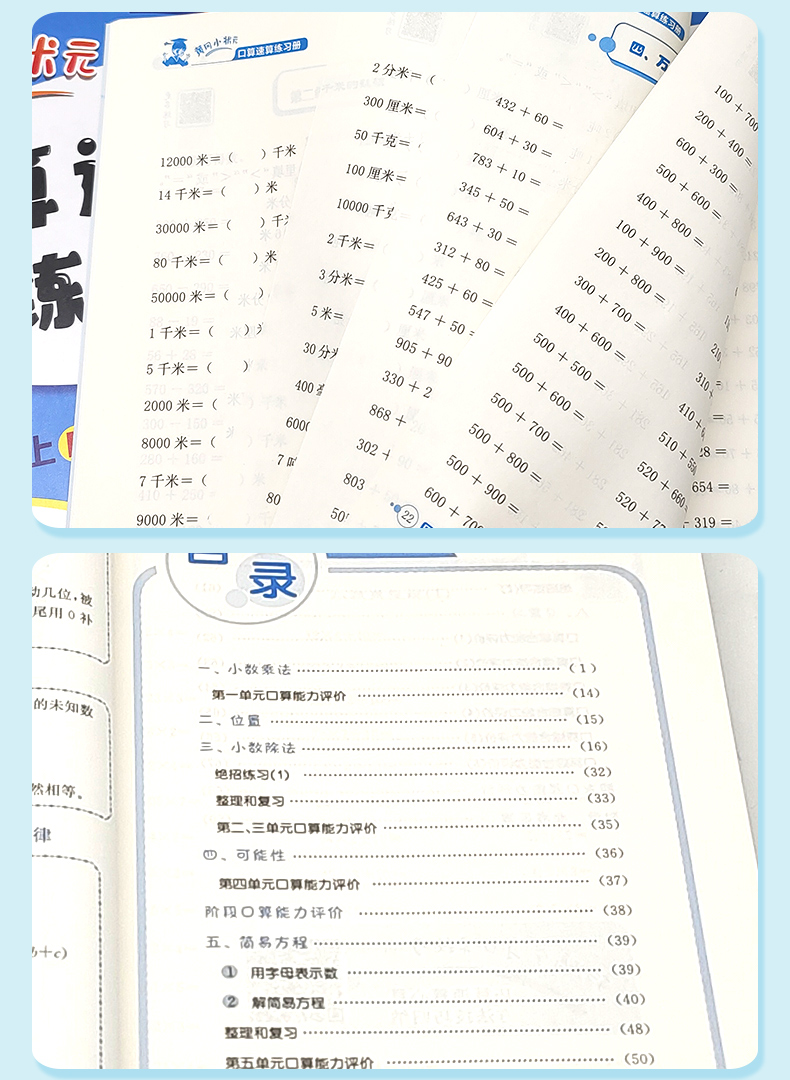 状元
算
练
上
黄冈小状元
口算速算练习册
12000 米＝（　　）千米
14 千米＝（　　）米
30000 米＝（　　）千
80 千米＝（　　）米
50000 米＝（　　）
1 千米＝（　　）
5 千米＝（　　）
2000 米＝（
8000 米＝（
7 千米＝（
9000 米＝（
2 分米＝（
300 厘米＝
50 千克＝（
100 厘米＝
10000 千克
2 千米＝
3 分米＝
5 米＝
30 分
400
600
7
80
算练习册
四、万
432 + 60 =
604 + 30 =
783 + 10 =
345 + 50 =
643 + 30 =
312 + 80 =
425 + 60 =
547 + 50 =
905 + 90
330 + 2
868 +
302 +
803
50
22
100 + 700
200 + 400 =
600 + 300 =
500 + 600 =
400 + 800 =
100 + 900 =
200 + 800 =
300 + 700 =
400 + 600 =
500 + 500 =
500 + 600 =
500 + 700 =
500 + 800 =
500 + 900 =
600 + 700
310 +
410 +
510 + 550
520 + 660
520 + 7
28 =
654 =
319 =
动几位，被
尾用 0 补
的未知数
然相等。
律
b+c)
目录
一、小数乘法 （1）
第一单元口算能力评价 （14）
二、位置 （15）
三、小数除法 （16）
绝招练习(1) （32）
整理和复习 （33）
第二、三单元口算能力评价 （35）
四、可能性 （36）
第四单元口算能力评价 （37）
阶段口算能力评价 （38）
五、简易方程 （39）
① 用字母表示数 （39）
② 解简易方程 （40）
整理和复习 （48）
第五单元口算能力评价 （50）